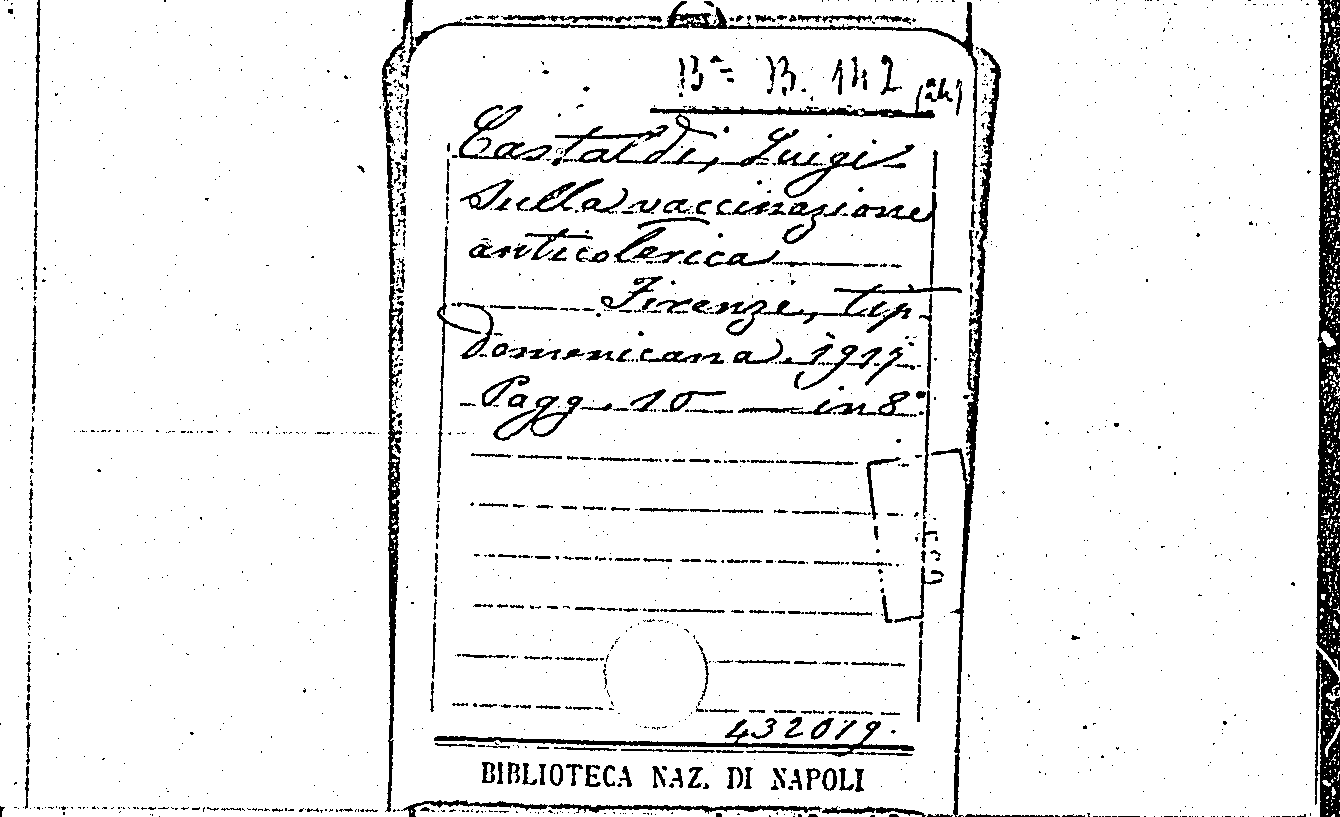 Bª B. 142 (24)
Castaldi, Luigi
Sulla vaccinazione
anticolerica
Firenze, tip.
domenicana. 1915
Pagg. 10 — in 8°
432019.
BIBLIOTECA NAZ. DI NAPOLI